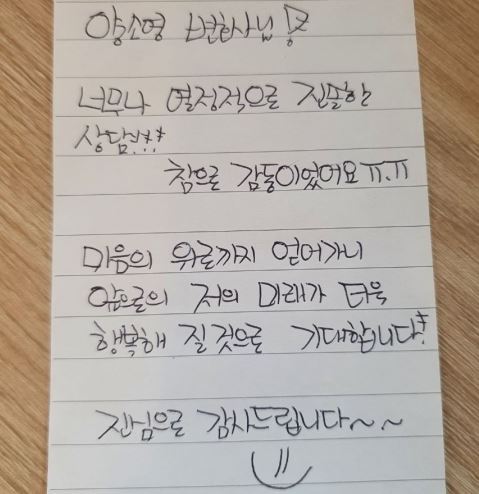 양소영 변호사님!
너무나 열정적으로 진솔한
상담!!
참으로 감동이었어요 ㅠ.ㅠ
마음의 위로까지 얻어가니
앞으로의 저의 미래가 더욱
행복해 질 것으로 기대합니다!
진심으로 감사드립니다~~